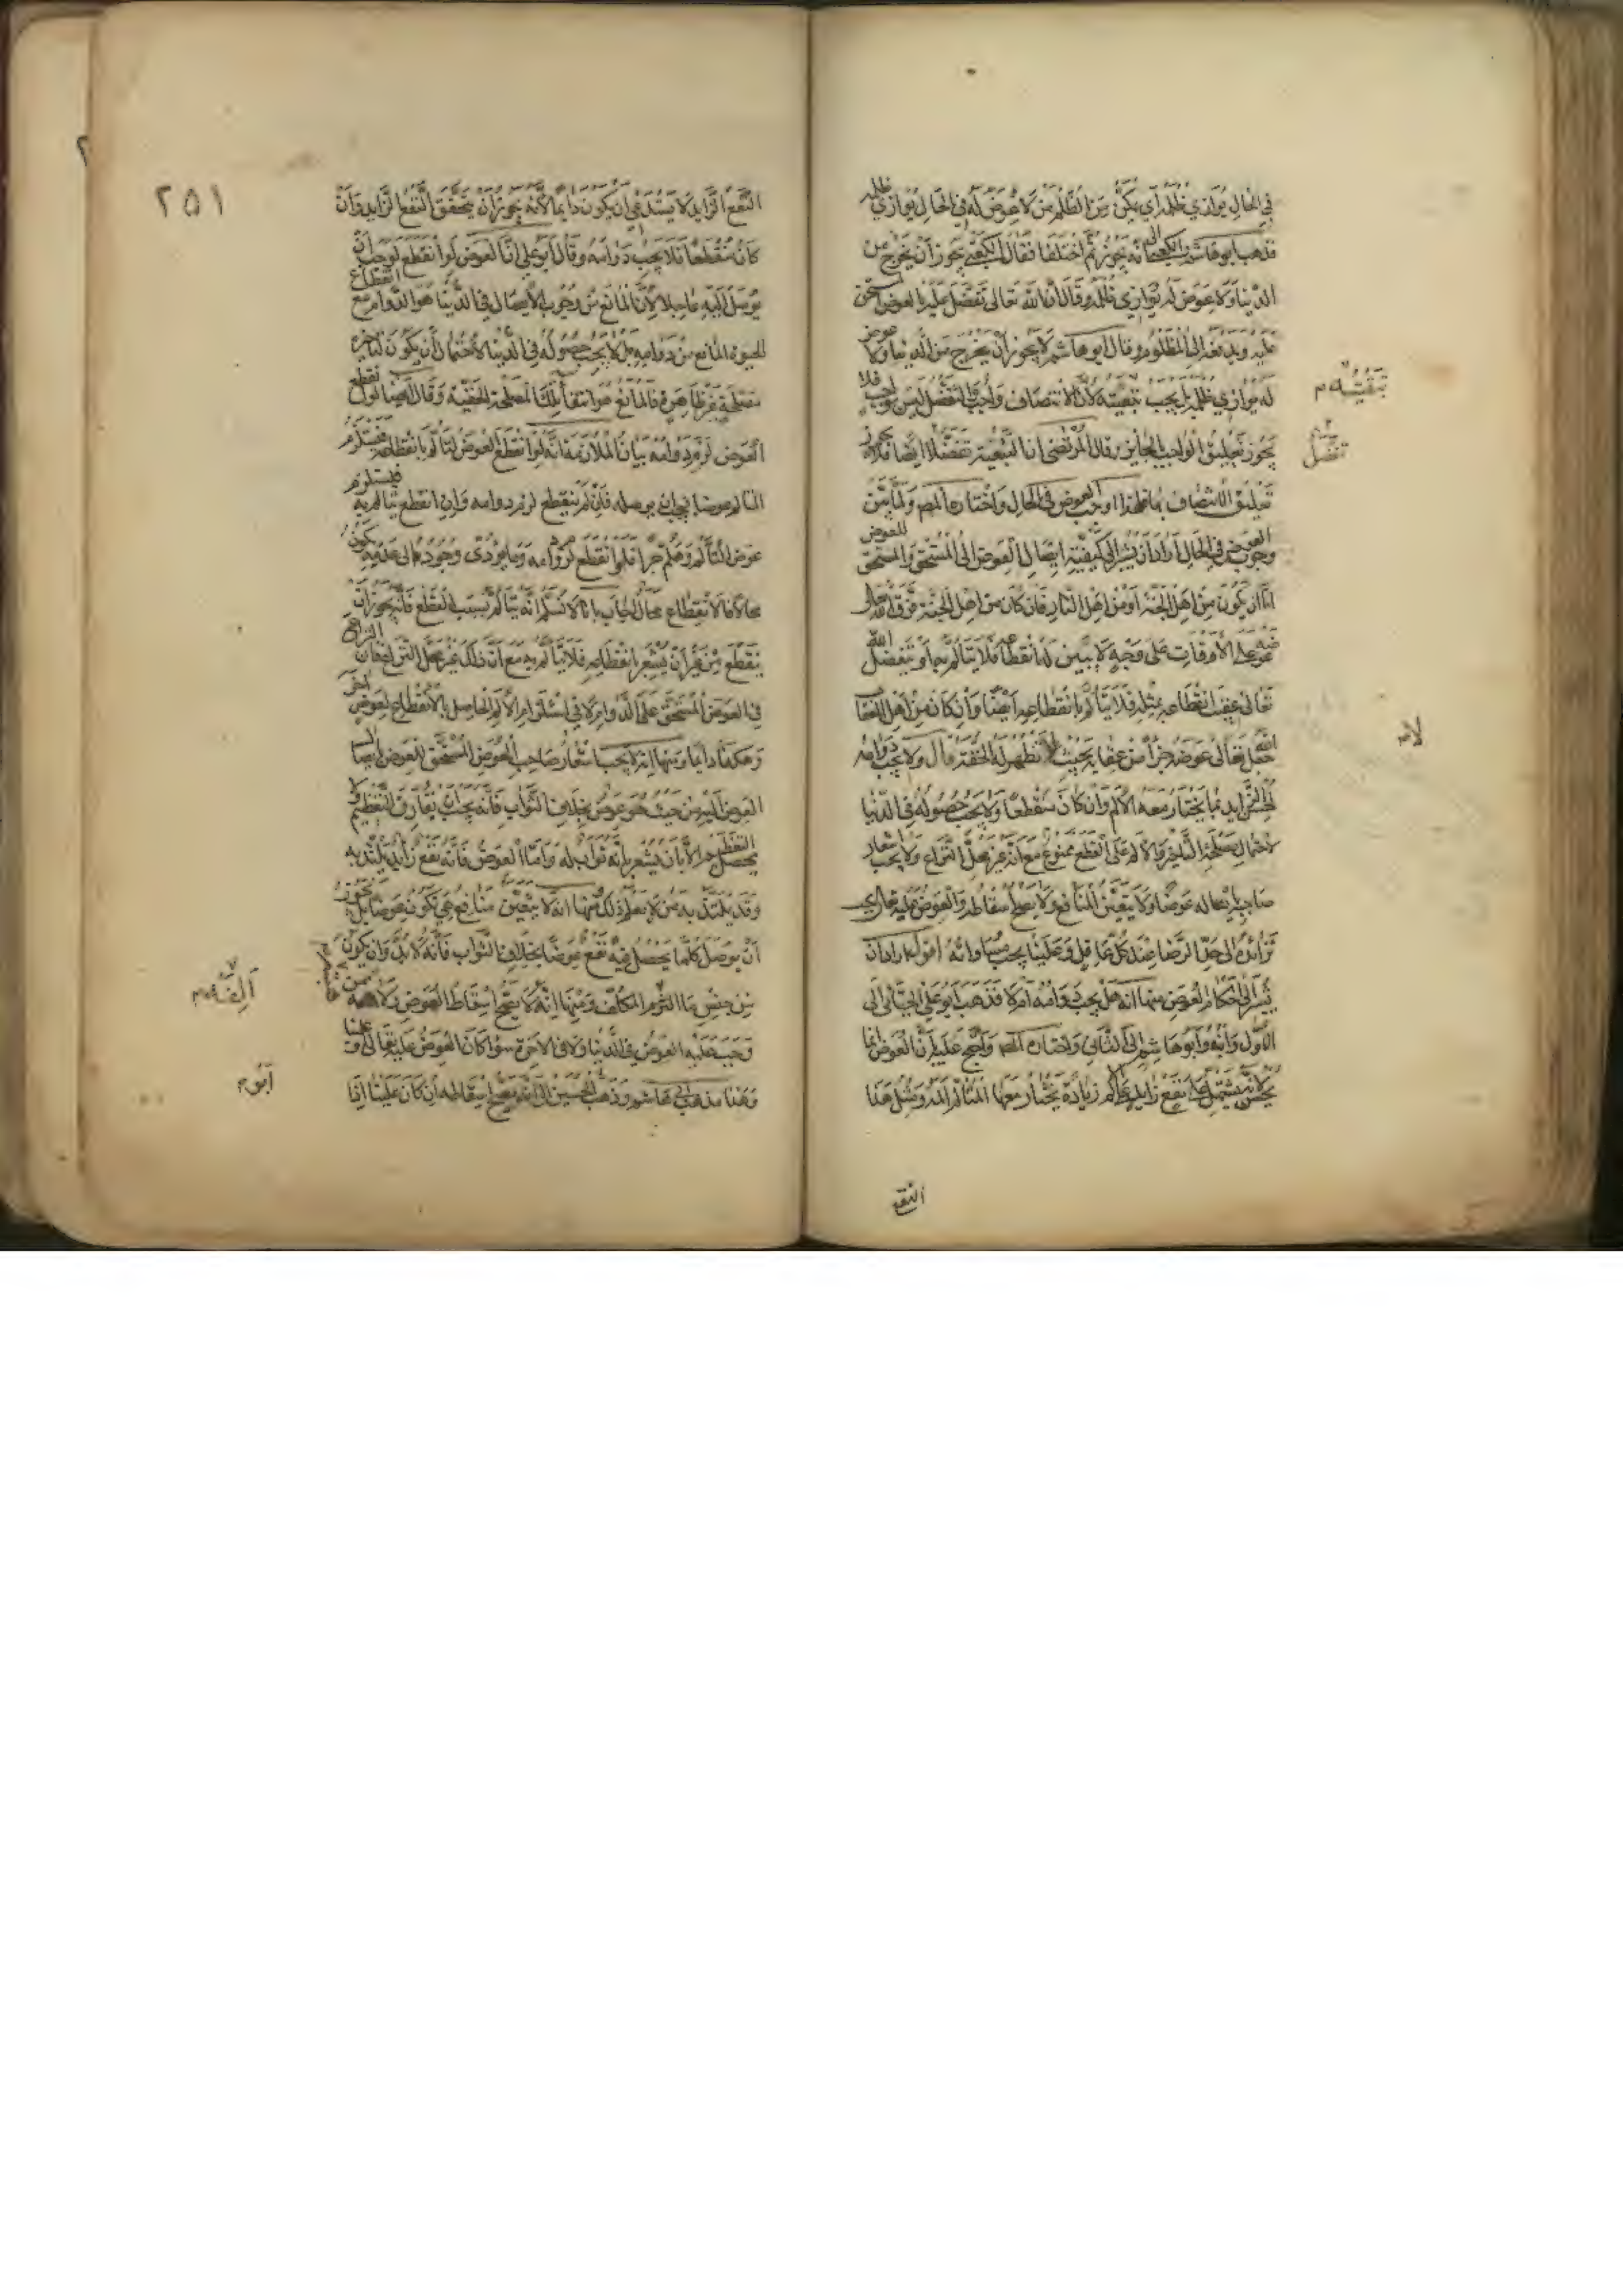 في الحال يوازي ظلمه اي يمكن من الظلم من لا عوض له في الحال يوازي ظلمه
فذهب ابو هاشم والكعبي الى انه يجوز ثم اختلفا فقال الكعبي يجوز ان يخرج من
الدنيا ولا عوض له يوازي ظلمه وقال ان الله تعالى تفضل عليه بالعوض المستحق
عليه ويدفعه الى المظلوم وقال ابو هاشم لا يجوز ان يخرج من الدنيا ولا عوض
له يوازي ظلمه بل يجب تبقيته لان الانتصاف واجب والتفضل ليس بواجب فلا
يجوز تعليق الواجب بالجايز وقال المرتضى ان التبقية تفضل ايضا فلا يجوز
تعليق الانتصاف بها فلهذا اوجب العوض في الحال واختاره المص ولما بين
وجوب العوض في الحال اراد ان يشير الى كيفية ايصال العوض الى المستحق والمستحق للعوض
اما ان يكون من اهل الجنة او من اهل النار فان كان من اهل الجنة فرق الله تعالى
عوضه على الاوقات على وجه لا يبين له انقطاعه فلا يتألم به او يتفضل الله
تعالى عقيب انقطاعه بمثله فلا يتألم بانقطاعه ايضا وان كان من اهل العقاب
جعل الله تعالى عوضه جزأ من عقابه بحيث لا تظهر له الخفة قال ولا يجب دوامه
لحسن الزايد بما يختار معه الالم وان كان منقطعا ولا يجب حصوله في الدنيا
لاحتمال مصلحة التاخير والالم على القطع ممنوع مع انه غير محل النزاع ولا يجب اشعار
صاحبه بايصاله عوضا ولا يتعين المنافع ولا يصح اسقاطه والعوض عليه تعالى يجب
تزائده الى حد الرضا عند كل عاقل وعلينا يجب مساواته اقول اراد ان
يشير الى احكام العوض منها انه هل يجب دوامه ام لا فذهب ابو علي الجبائي الى
الاول وابنه ابو هاشم الى الثاني واختاره المص واحتج عليه بان العوض انما
يحسن لانه يشتمل على نفع زايد على الالم زيادة يختار معها المتألم المه ومثل هذا
النفع
تبقيته م
تفضل
لامه
٢٥١
النفع الزايد لا يستدعي ان يكون دايما لانه يجوز ان يتحقق النفع الزايد وان
كان منقطعا فلا يجب دوامه وقال ابو علي ان العوض لو انقطع لوجب ان
يوصل اليه عاجلا لان المانع من وجوب الايصال في الدنيا هو الدوام مع انقطاع
الحيوة المانع من دوامه بل لا يجب حصوله في الدنيا لاحتمال ان يكون لتاخيره
مصلحة غير ظاهرة فالمانع هو انتفأ تلك المصلحة الخفية وقال ايضا لو انقطع
العوض لزم دوامه بيان الملازمة انه لو انقطع العوض لتألم بانقطاعه فيستلزم
التالم عوضا اخر يوصله فان لم ينقطع لزم دوامه وان انقطع تالم به فيستلزم
عوض التألم وهلم جرا فلو انقطع لزم دوامه وما يؤدى وجوده الى عدمه يكون
محالا فالانقطاع محال اجاب بانا لا نسلم انه يتألم بسبب القطع فانه يجوز ان
ينقطع من غير ان يشعر بانقطاعه فلا يتألم به مع ان ذلك غير محل النزاع فان النزاع
في العوض المستحق على الدوام لا في استلزام الالم الحاصل بالانقطاع لعوض اخر
وهكذا دايما ومنها انه لا يجب اشعار صاحب العوض المستحق للعوض بايصال
العوض اليه من حيث هو عوض بخلاف الثواب فانه يجب ان يقارن التعظيم ولا
يحصل التعظيم الا بان يشعر بانه ثواب له واما العوض فانه نفع زايد يلتذ به
وقد يلتذ به من لا يعلم ذلك ومنها انه لا يتعين منافع هي تكون عوضا بل يجوز
ان يوصل كلما يحصل فيه نفع عوضا بخلاف الثواب فانه لا بد وان يكون
من جنس ما التزم المكلف ومنها انه لا يصح اسقاط العوض ولا هبته ممن
وجب عليه العوض في الدنيا ولا في الاخرة سوا كان العوض عليه تعالى او علينا
وهذا مذهب ابي هاشم وذهب ابو الحسين الى انه يصح اسقاطه ان كان علينا اذا
الفه م
ابو م